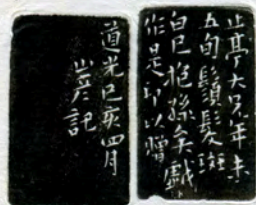 止亭大兄年未
五旬鬚髮斑
白已抱孫矣戲
作是印以贈
道光己亥四月
記